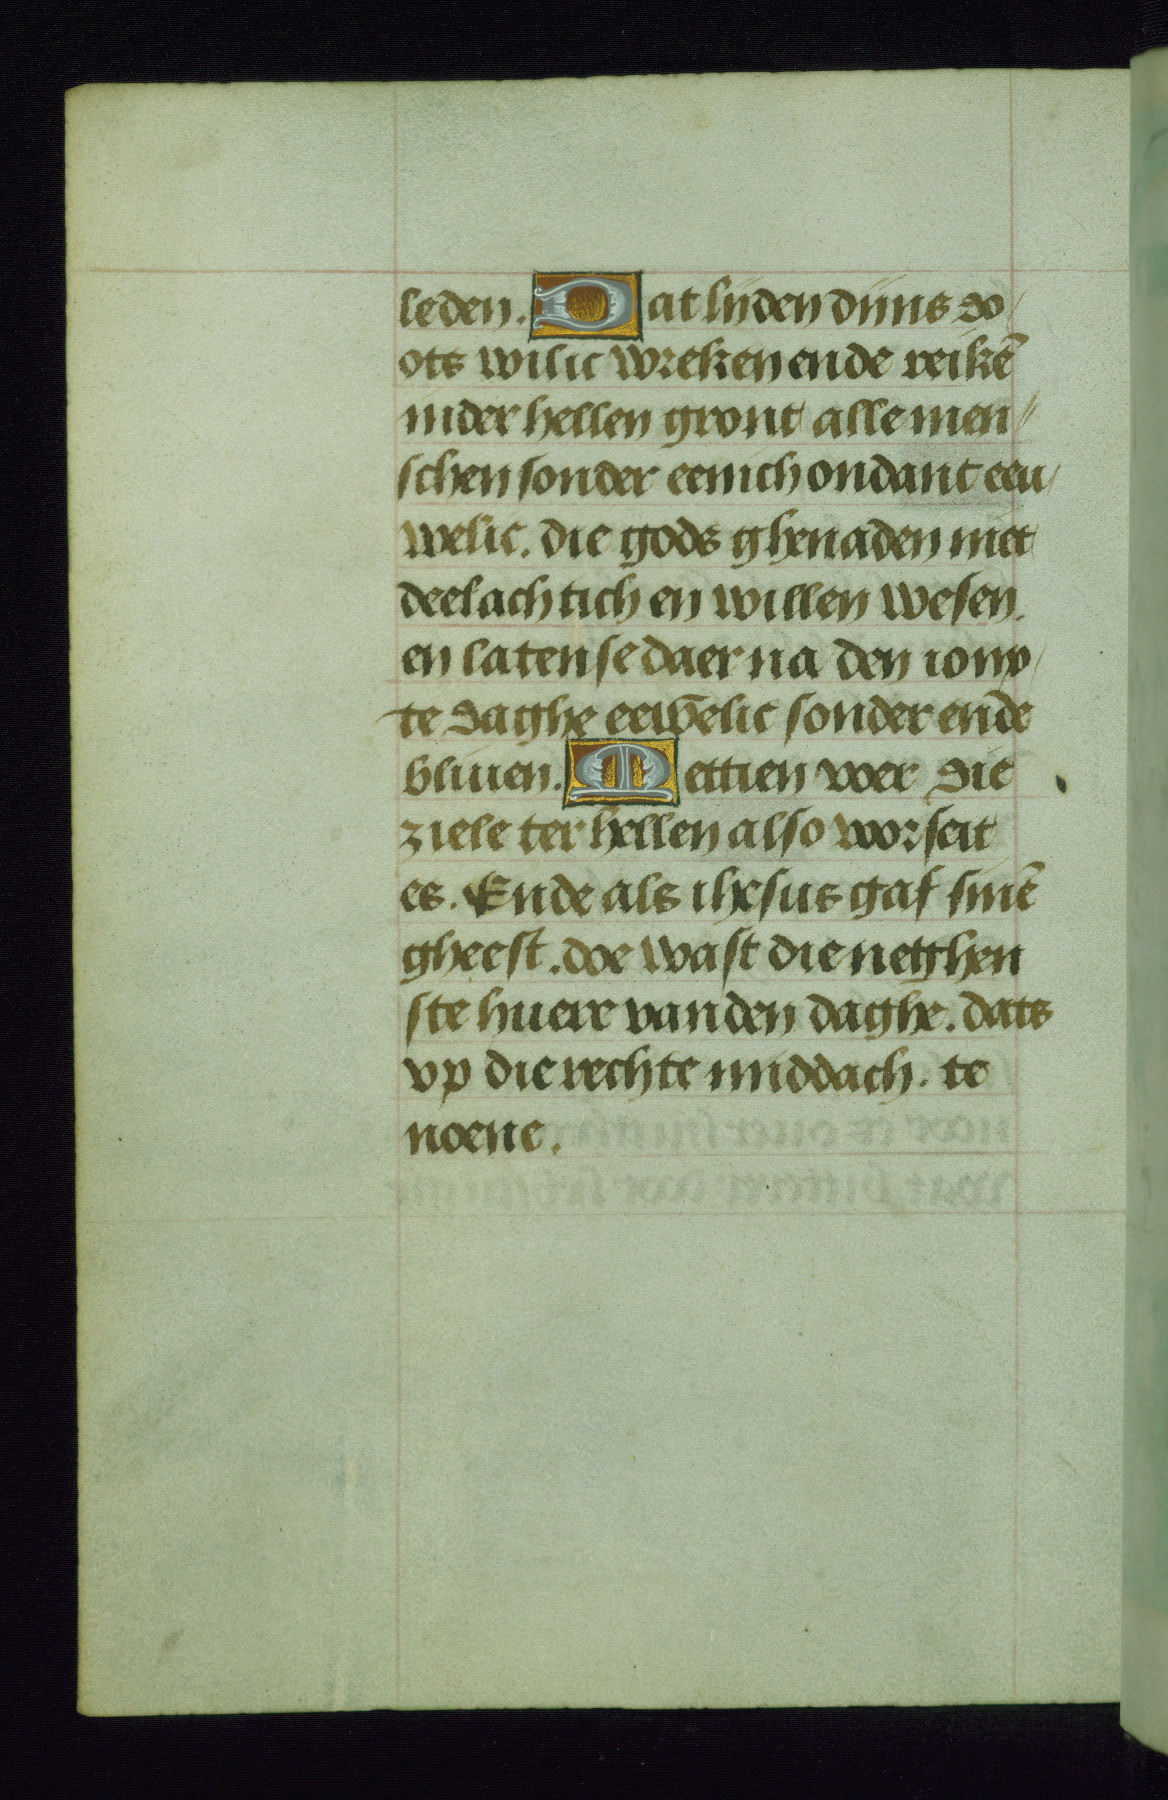 leden. Dat lijden dijns do/
ots wilic wreken ende reikē
inder hellen gront alle men//
schen sonder eenich ondant eeu/
welic. die gods ghenaden niet
deelachtich en willen wesen.
en laten se daer na den ionx/
te daghe eewelic sonder ende
bliuen. Mettien voer die
ziele ter hellen also voorseit
es. Ende als ihesus gaf sinē
gheest. doe wast die neghen
ste huere vanden daghe. dats
vp die rechte middach. te
noene.